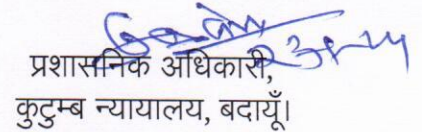 प्रशासनिक अधिकारी,
कुटुम्ब न्यायालय, बदायूँ।